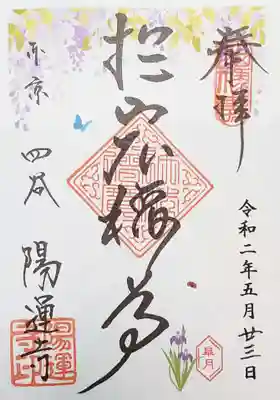 奉拝
令和二年五月廿三日
皐月
於岩
東京
四谷
陽運寺